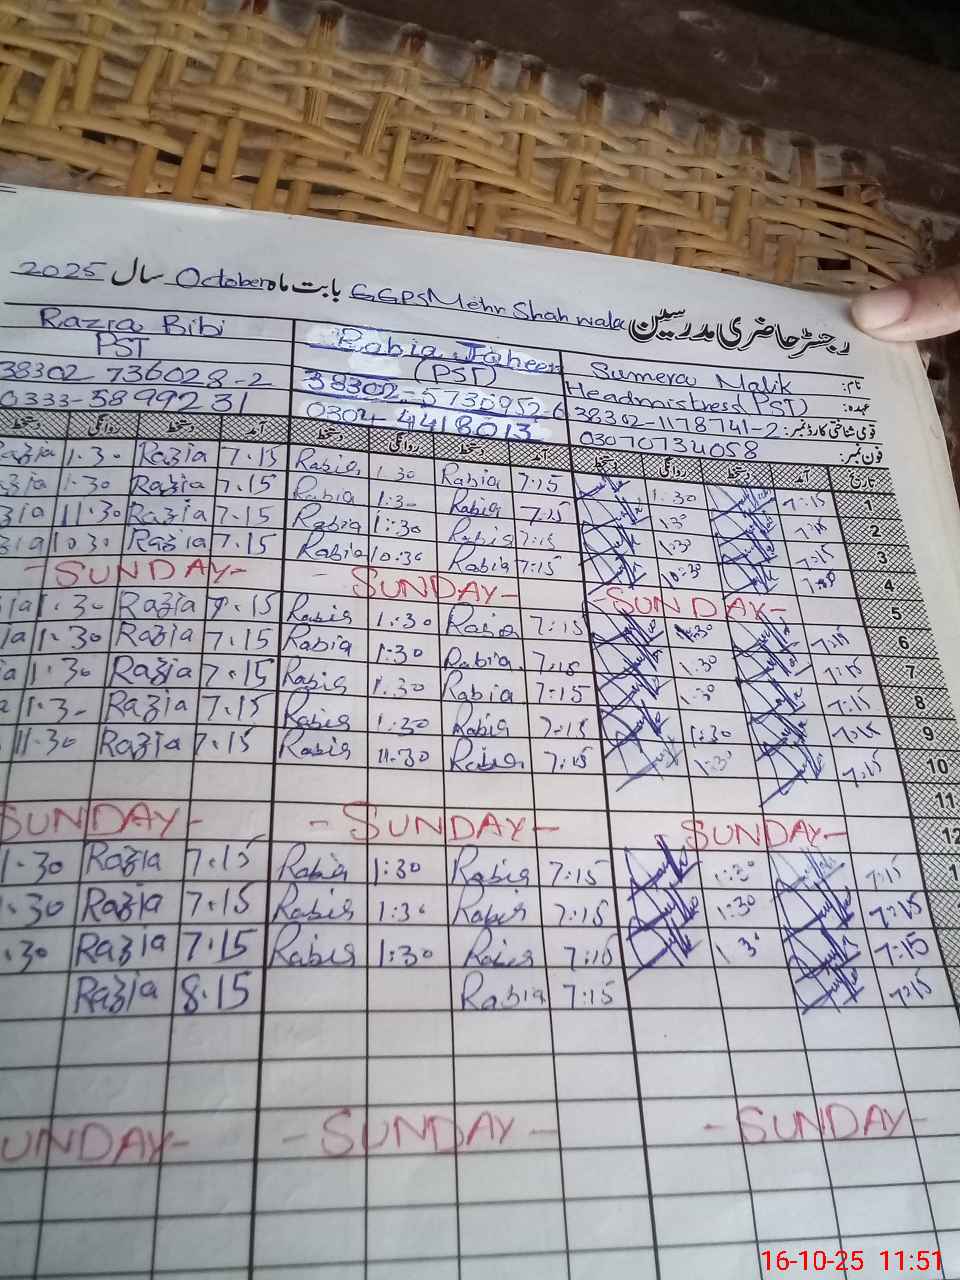 رجسٹر حاضری مدرسین GGPS Mehr Shah wala بابت ماہ October سال 2025
نام: Sumera Malik Rabia Jaheen Razia Bibi
عہدہ: Headmistress (PST) (PST) PST
قومی شناختی کارڈ نمبر: 38302-1178741-2 38302-5730952-6 38302-736028-2
فون نمبر: 03070734058 0304-4418013 0333-5899231
تاریخ آمد دستخط روانگی دستخط آمد دستخط روانگی دستخط آمد دستخط روانگی
1 7:15 1:30 7:15 Rabia 1:30 Rabia 7.15 Razia 1.30 Razia
2 7:15 1:30 7:15 Rabia 1:30 Rabia 7.15 Razia 1.30
3 7:15 1:30 7:15 Rabia 1:30 Rabia 7.15 Razia 11.30
4 10:30 7:15 Rabia 10:30 Rabia 7.15 Razia 10.30
5 SUNDAY- - SUNDAY- -SUNDAY-
6 7:15 1:30 7:15 Rabia 1:30 Rabia 7.15 Razia 1.30
7 7:15 1:30 7:15 Rabia 1:30 Rabia 7.15 Razia 1.30
8 7:15 1:30 7:15 Rabia 1:30 Rabia 7.15 Razia 1.30
9 7:15 1:30 7:15 Rabia 1:30 Rabia 7.15 Razia 1.3-
10 7:15 1:30 7:15 Rabia 11:30 Rabia 7.15 Razia 11.30
11
12 SUNDAY- - SUNDAY- SUNDAY-
7:15 1:30 7:15 Rabia 1:30 Rabia 7.15 Razia 1.30
7:15 1:30 7:15 Rabia 1:30 Rabia 7.15 Razia .30
7:15 1:30 7:15 Rabia 1:30 Rabia 7.15 Razia .30
7:15 7:15 Rabia 8.15 Razia
- SUNDAY- - SUNDAY - UNDAY-
16-10-25 11:51